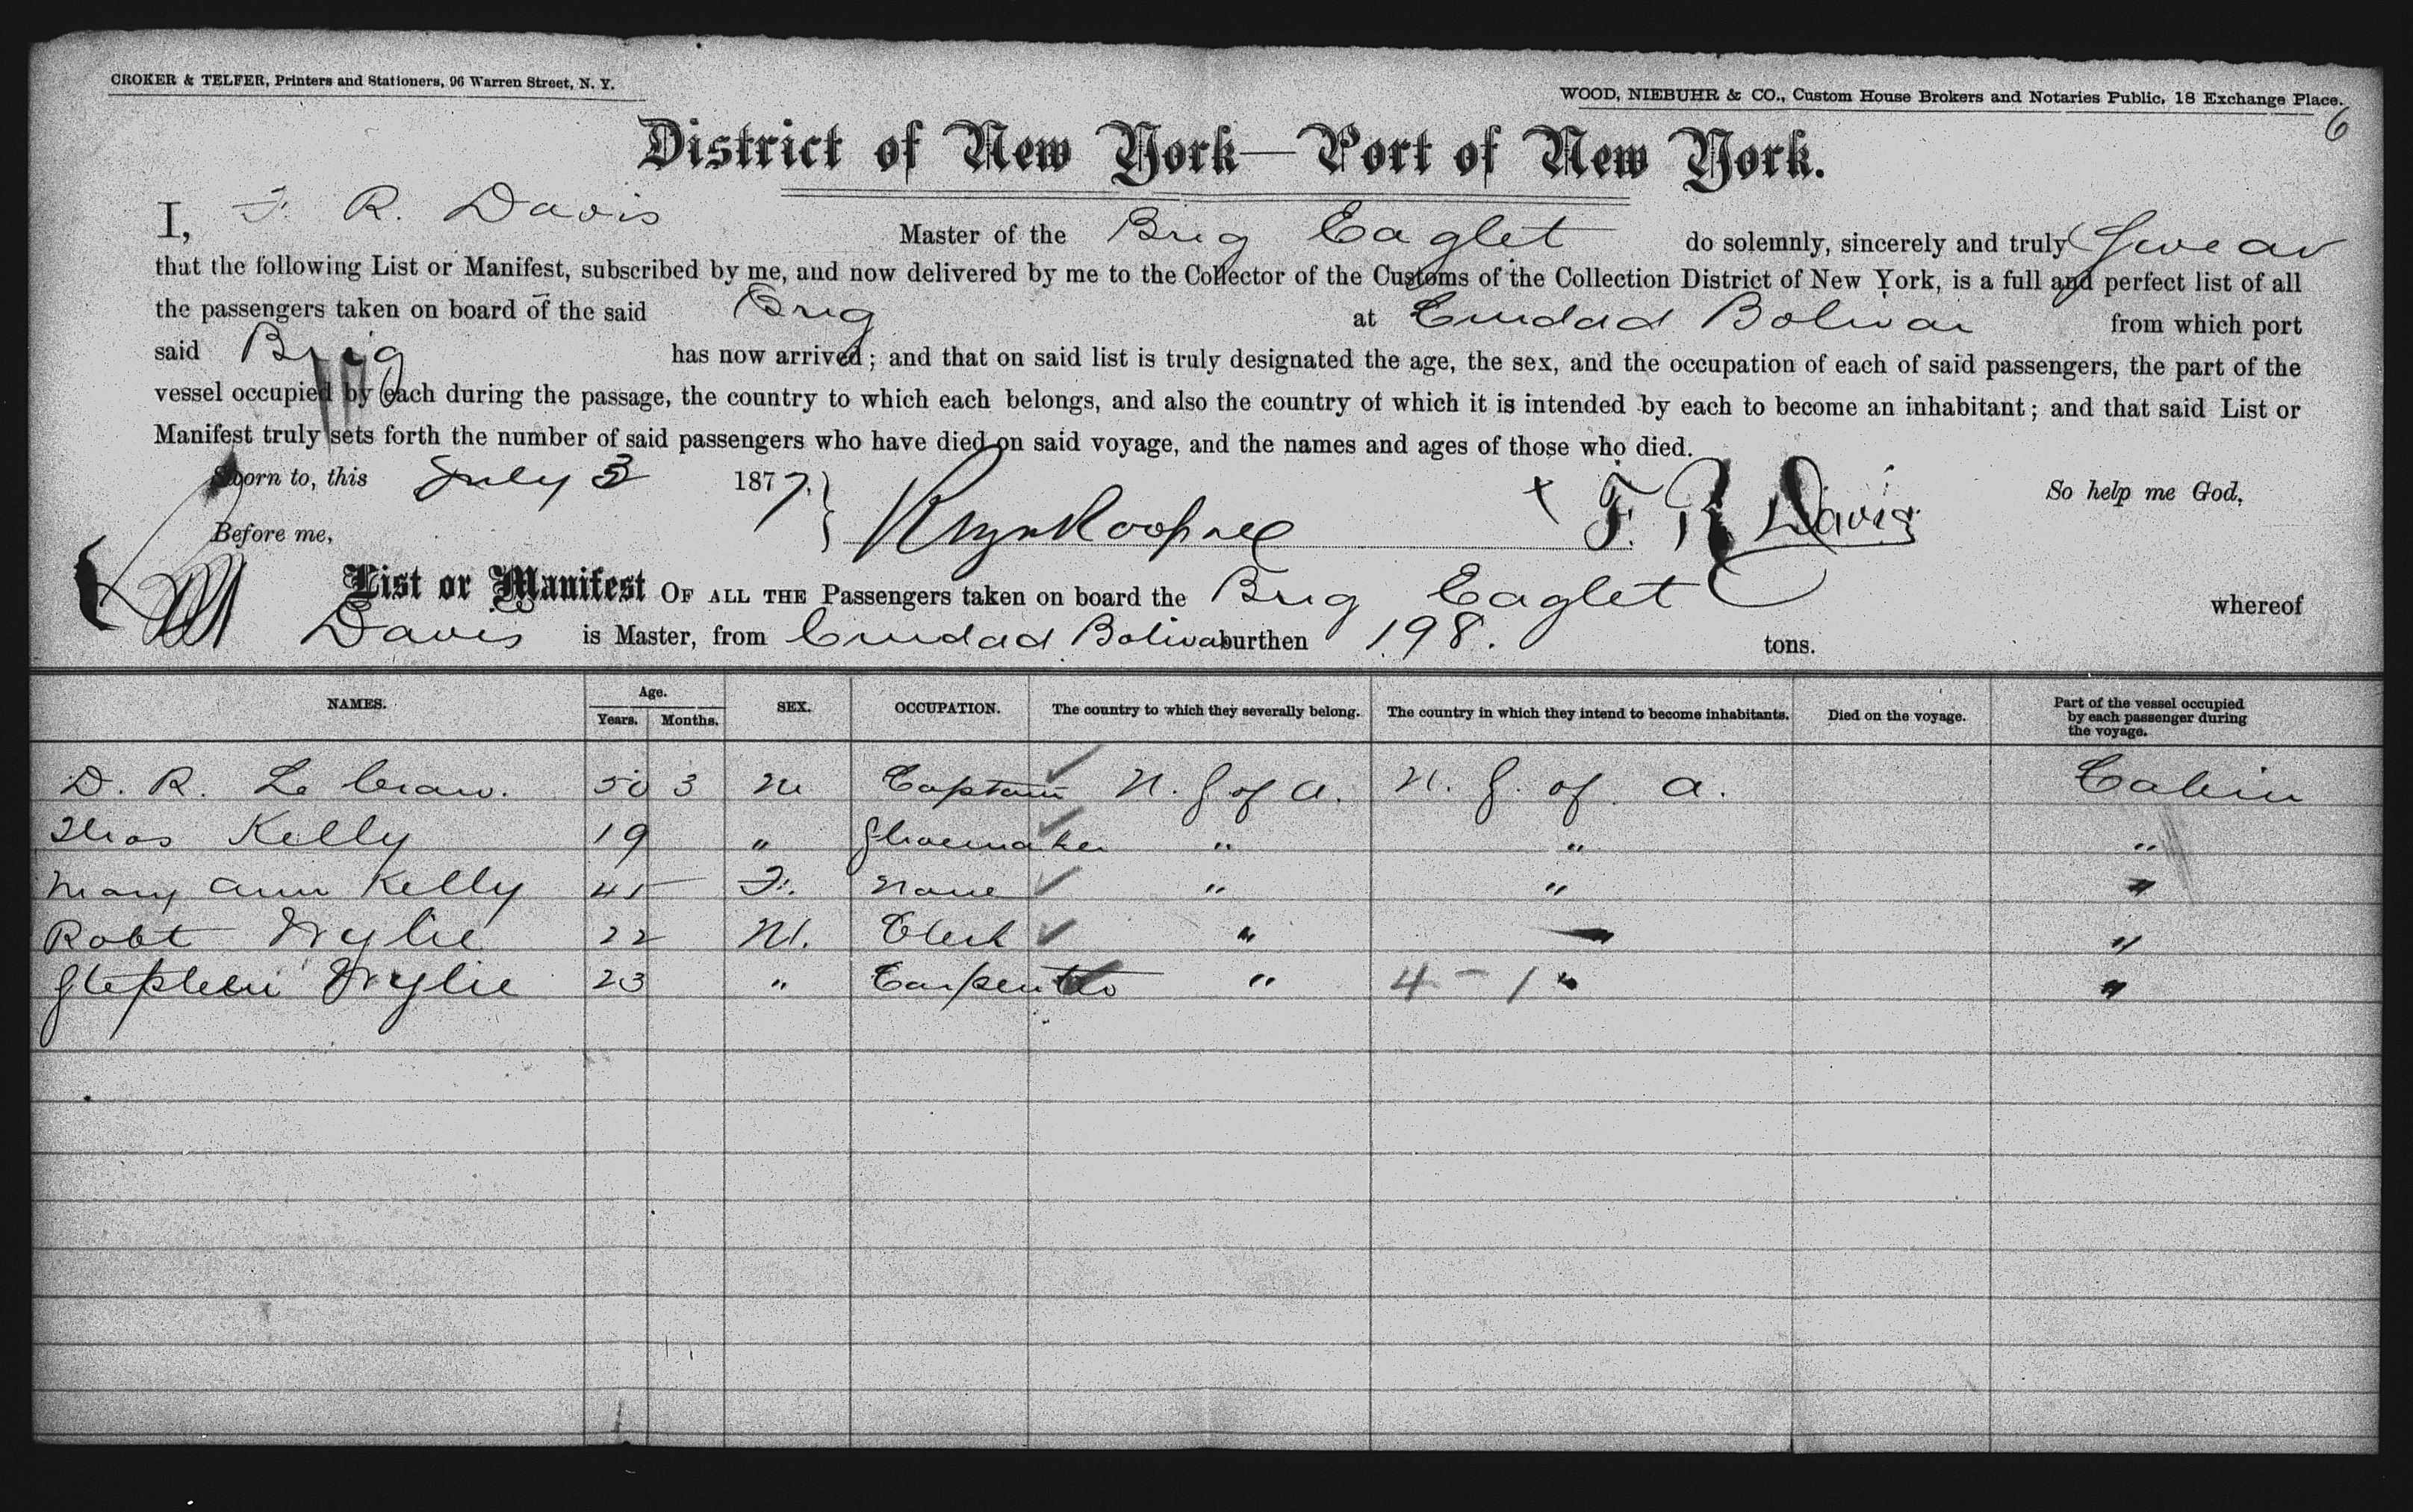 CROKER & TELFER, Printers and Stationers, 96 Warren Street, N. Y.
WOOD, NIEBUHR & CO., Custom House Brokers and Notaries Public, 18 Exchange Place.
6
District of New York—Port of New York.
I, F. R. Davis Master of the Brig Eaglet do solemnly, sincerely and truly Swear
that the following List or Manifest, subscribed by me, and now delivered by me to the Collector of the Customs of the Collection District of New York, is a full and perfect list of all
the passengers taken on board of the said Brig at Cuidad Bolivar from which port
said Brig has now arrived; and that on said list is truly designated the age, the sex, and the occupation of each of said passengers, the part of the
vessel occupied by each during the passage, the country to which each belongs, and also the country of which it is intended by each to become an inhabitant; and that said List or
Manifest truly sets forth the number of said passengers who have died on said voyage, and the names and ages of those who died.
Sworn to, this July 3 1877. } + F. R Davis So help me God,
Before me,
List or Manifest OF ALL THE Passengers taken on board the Brig Eaglet whereof
Davis is Master, from Cuidad Bolivar burthen 198. tons.
NAMES. Age. Years. Months. SEX. OCCUPATION. The country to which they severally belong. The country in which they intend to become inhabitants. Died on the voyage. Part of the vessel occupied by each passenger during the voyage.
D. R. Le Craw. 50 3 M Captain U. S of A. U. S. of A. Cabin
Thos Kelly 19 " Shoemaker " " "
Mary Ann Kelly 45 F. None " " "
Robt Wylie 22 M. Clerk " " "
Stephen Wylie 23 " Carpenter " 4 - 1 " "